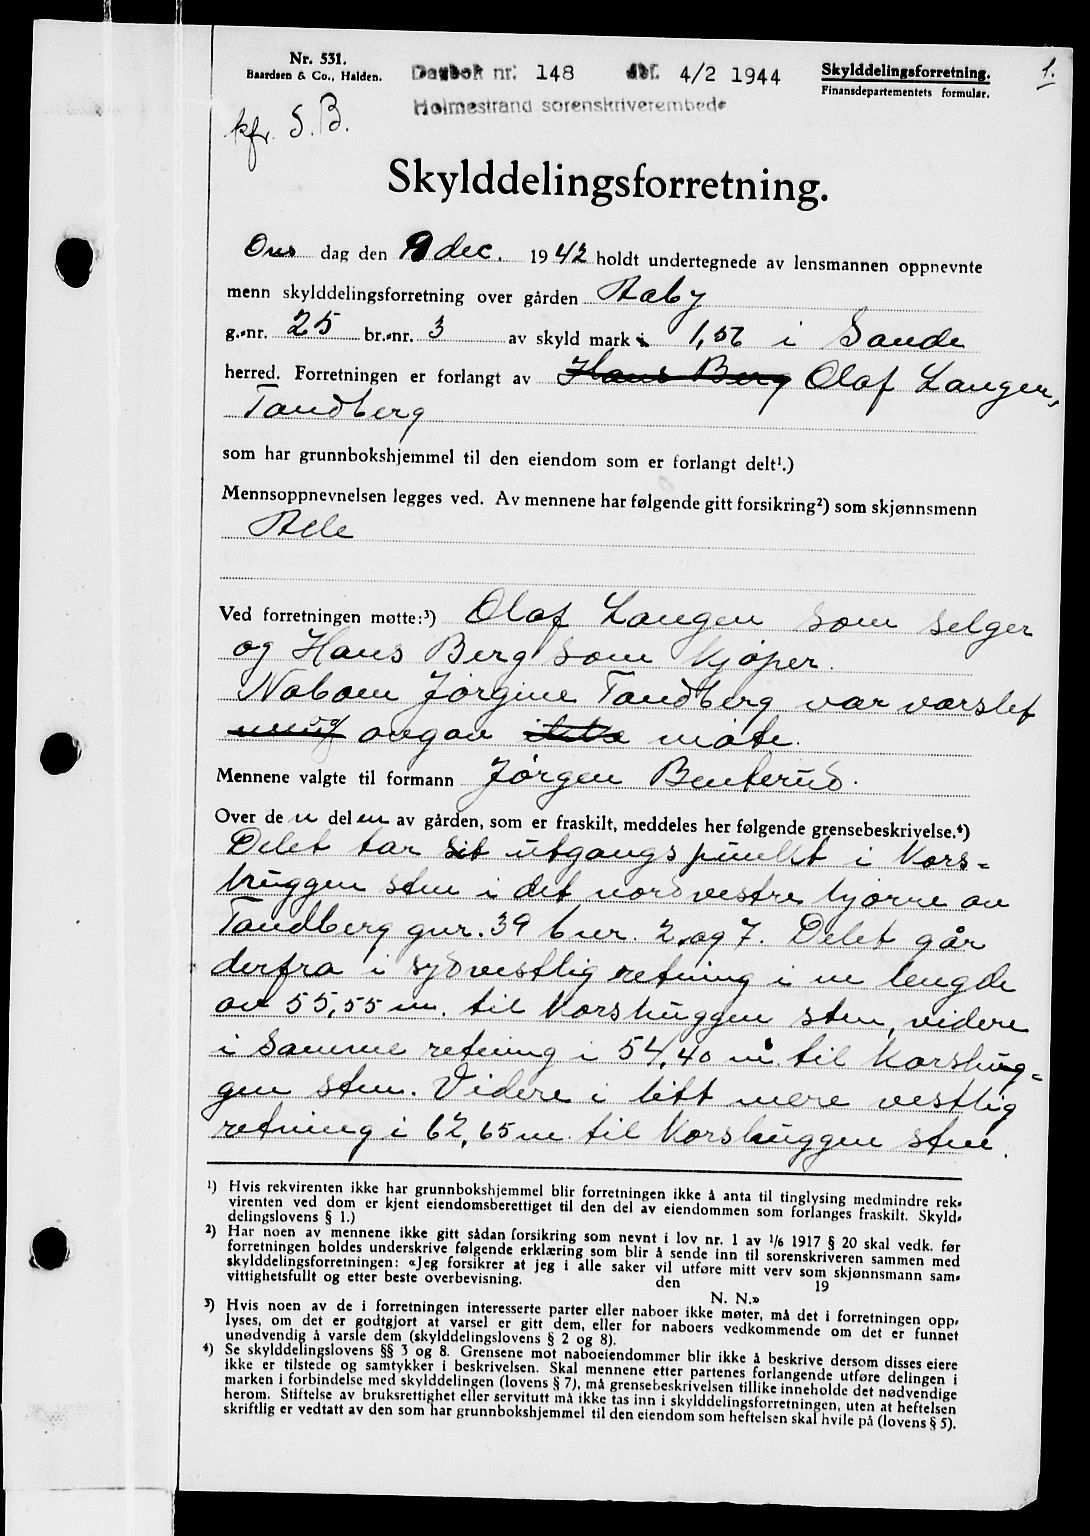 Nr. 531.
Baardsen & Co., Halden.
Dagbok nr. 148 4/2 1944
Holmestrand sorenskriverembede
Skylddelingsforretning.
Finansdepartementets formular.
1.
kfr. S.B.
Skylddelingsforretning.
Ons dag den 9 dec. 1942 holdt undertegnede av lensmannen oppnevnte
menn skylddelingsforretning over gården Aaby
g.-nr. 25 br.-nr. 3 av skyld mark 1,56 i Sande
herred. Forretningen er forlangt av Hans Berg Olaf Langen,
Tandberg
som har grunnbokshjemmel til den eiendom som er forlangt delt¹.)
Mennsoppnevnelsen legges ved. Av mennene har følgende gitt forsikring²) som skjønnsmenn
Alle
Ved forretningen møtte:³) Olaf Langen som selger
og Hans Berg som kjøper.
Naboen Jørgine Tandberg var varslet
og møte.
Mennene valgte til formann Jørgen Benterud.
Over de n del en av gården, som er fraskilt, meddeles her følgende grensebeskrivelse.⁴)
Delet tar sit utgangspunkt i kors-
huggen sten i det nordvestre hjørne av
Tandberg gnr. 39 bnr. 2 og 7. Delet går
derfra i sydvestlig retning i en lengde
av 55,55 m. til korshuggen sten, videre
i samme retning i 54,40 m. til korshug-
gen sten. Videre i litt mere vestlig
retning i 62,65 m. til korshuggen sten.
¹) Hvis rekvirenten ikke har grunnbokshjemmel blir forretningen ikke å anta til tinglysing medmindre rek-
virenten ved dom er kjent eiendomsberettiget til den del av eiendommen som forlanges fraskilt. Skyld-
delingslovens § 1.)
²) Har noen av mennene ikke gitt sådan forsikring som nevnt i lov nr. 1 av 1/6 1917 § 20 skal vedk. før
forretningen holdes underskrive følgende erklæring som blir å sende inn til sorenskriveren sammen med
skylddelingsforretningen: «Jeg forsikrer at jeg i alle saker vil utføre mitt verv som skjønnsmann sam-
vittighetsfullt og etter beste overbevisning. den 19
N. N.»
³) Hvis noen av de i forretningen interesserte parter eller naboer ikke møter, må det i forretningen opp-
lyses, om det er godtgjort at varsel er gitt dem, eller for naboers vedkommende om det er funnet
unødvendig å varsle dem (skylddelingslovens § 2 og 8).
⁴) Se skylddelingslovens §§ 3 og 8. Grensene mot naboeiendommer blir ikke å beskrive dersom disses eiere
ikke er tilstede og samtykker i beskrivelsen. Skal mennene etter partenes forlangende utføre delingen i
marken i forbindelse med skylddelingen (lovens § 7), må grensebeskrivelsen tillike inneholde det nødvendige
herom. Stiftelse av bruksrettighet eller servitutt må ikke tas inn i skylddelingsforretningen, uten at heftelsen
skriftlig er vedtatt av den som har grunnbokshjemmel til den eiendom som heftelsen skal hvile på (lovens § 5).